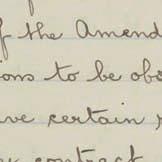 f the Amend
ons to be obs
ve certain r
contract